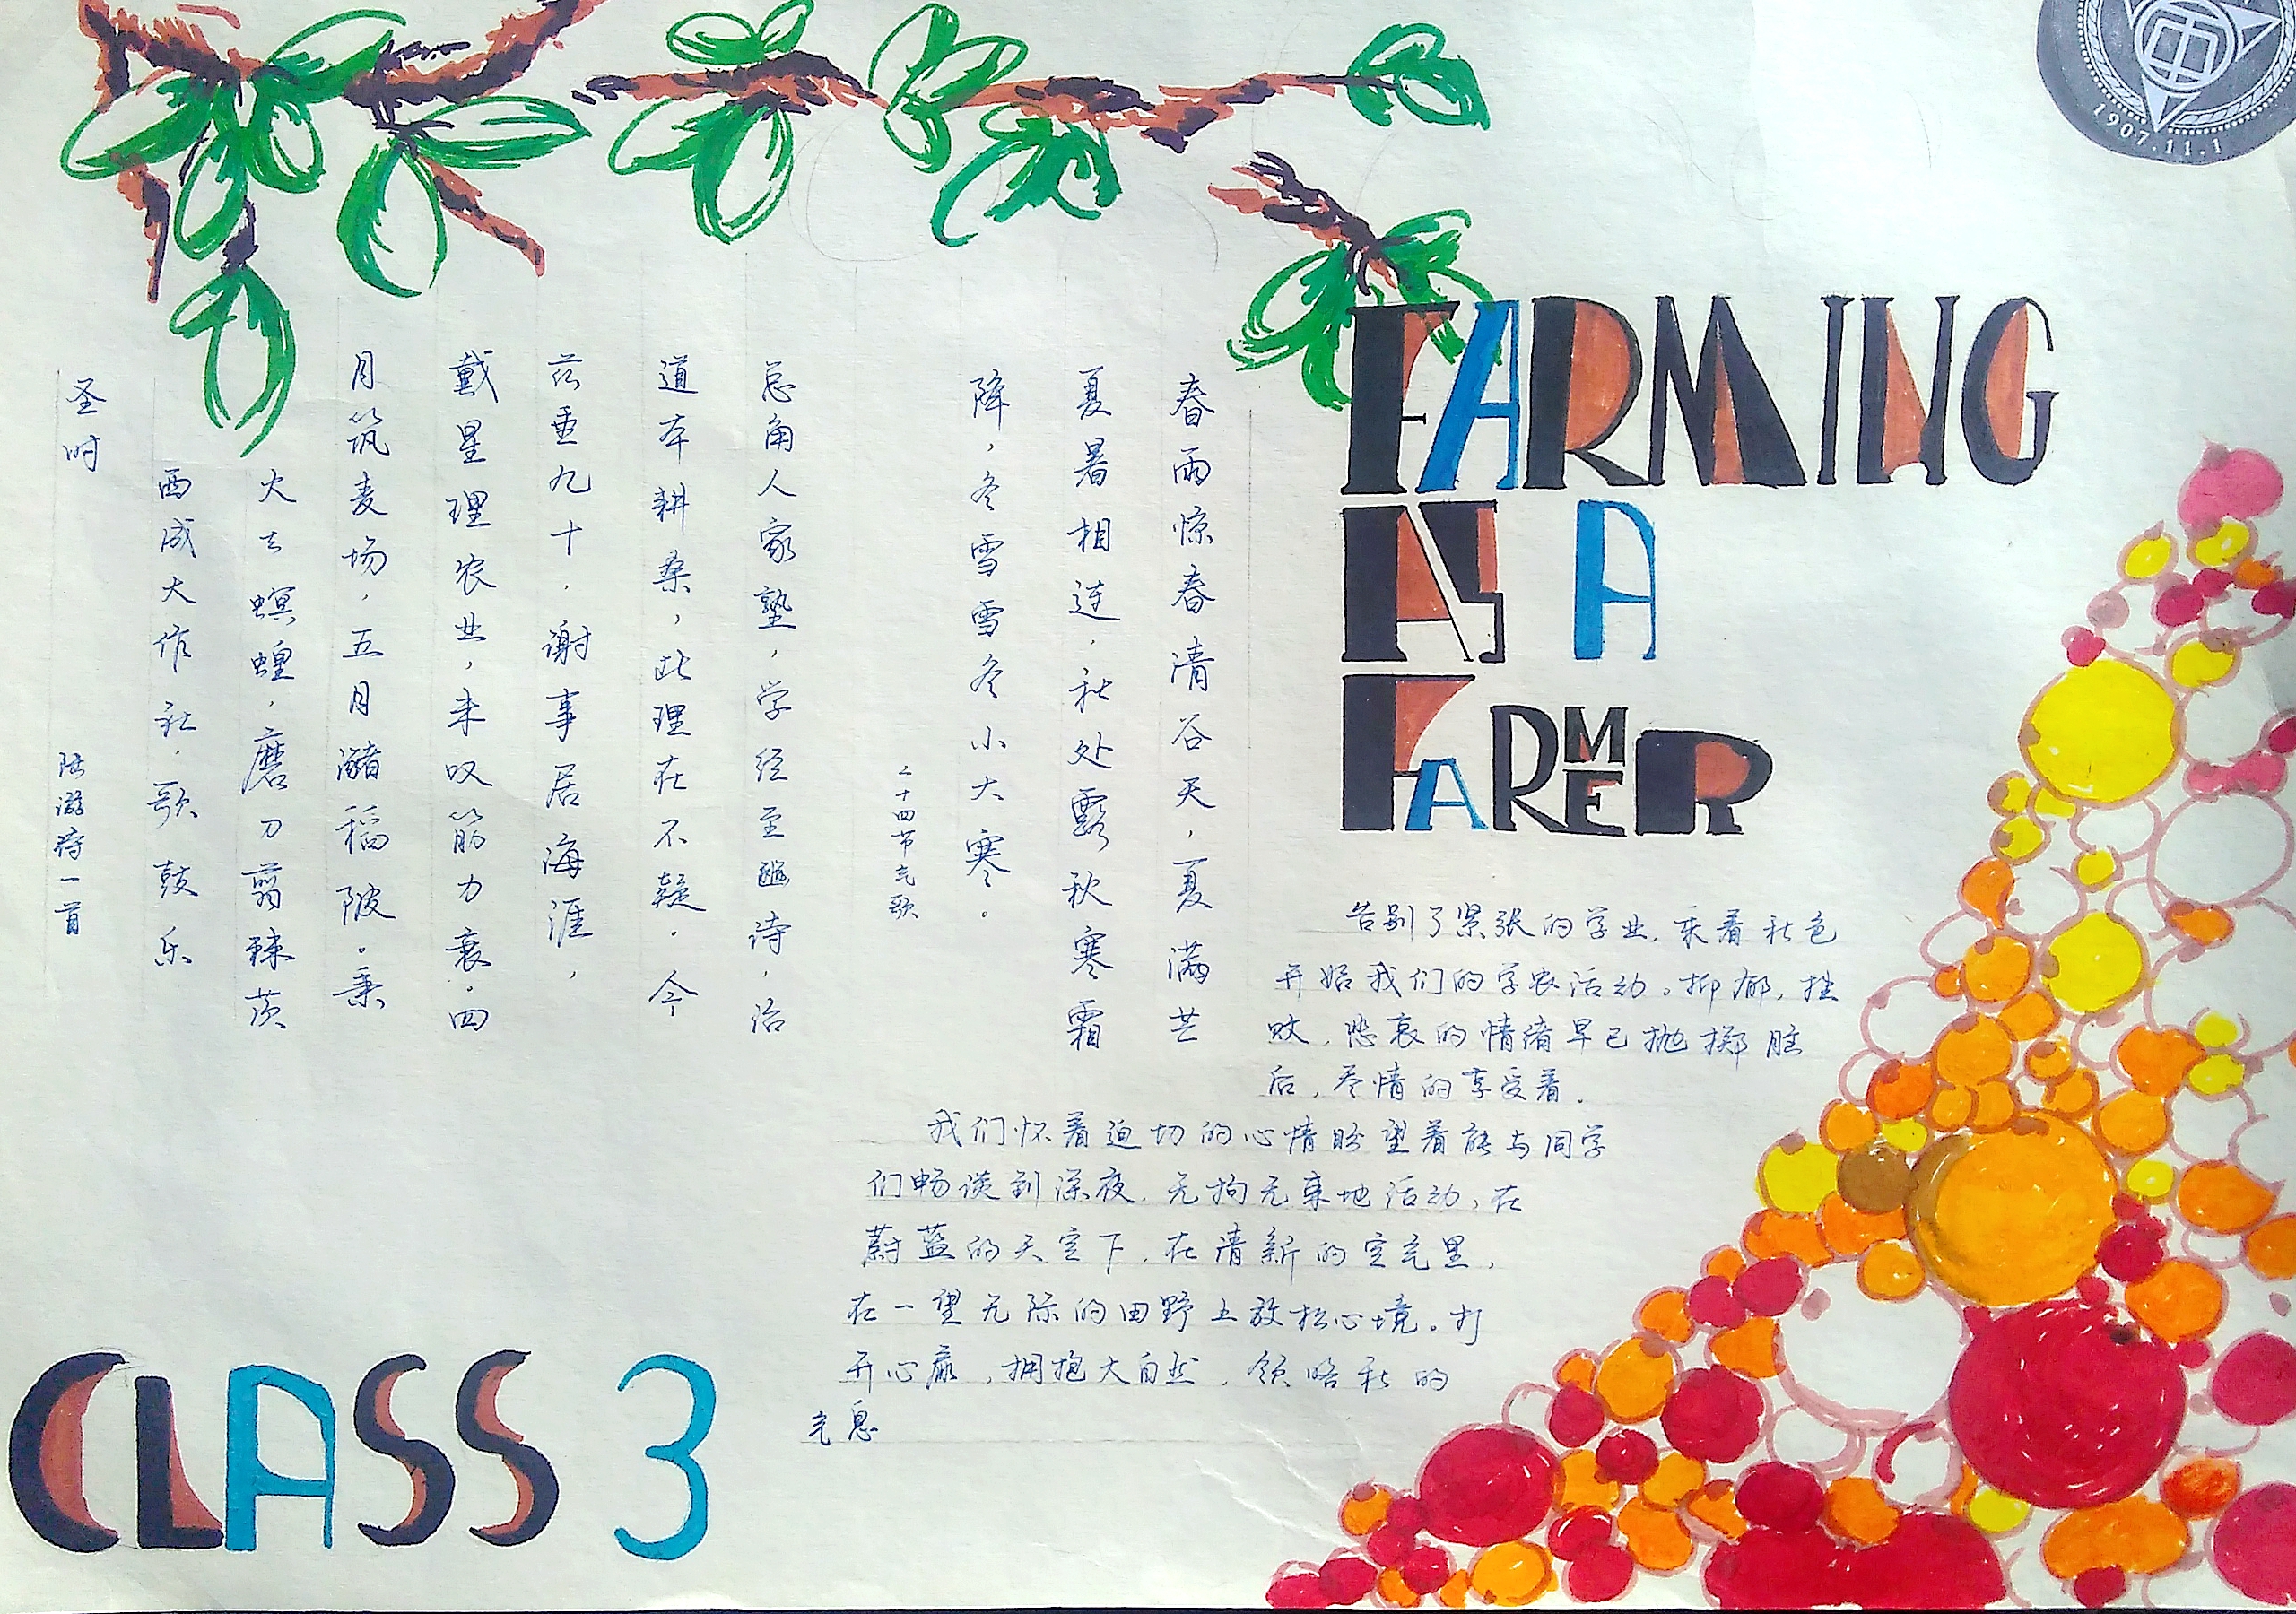 1907.11.1
FARMING
AS A
FARMER
春雨惊春清谷天，夏满芒
夏暑相连，秋处露秋寒霜
降，冬雪雪冬小大寒。
二十四节气歌
总角人家塾，学经至豳诗，治
道本耕桑，此理在不疑．今
兹垂九十，谢事居海涯，
戴星理农业，未叹筋力衰．四
月筑麦场，五月潴稻陂。秉
火去螟蝗，磨刀翦棘茨
西成大作社．歌鼓乐
圣时
陆游诗一首
告别了紧张的学业，乘着秋色
开始我们的学农活动。抑郁，挫
败，悲哀的情绪早已抛掷脑
后，尽情的享受着．
我们怀着迫切的心情盼望着能与同学
们畅谈到深夜．无拘无束地活动，在
蔚蓝的天空下．在清新的空气里，
在一望无际的田野上放松心境。打
开心扉，拥抱大自然，领略秋的
气息
CLASS 3